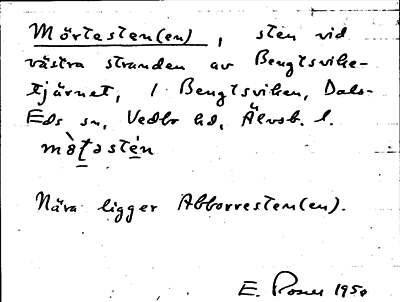 Mörtesten(en), sten vid
västra stranden av Bengtsvike-
tjärnet, 1 Bengtsviken, Dals-
Eds sn, Vedbo hd, Älvsb. l.
mö̀ʈəstén
Nära ligger Abborresten(en).
E. Rosell 1950